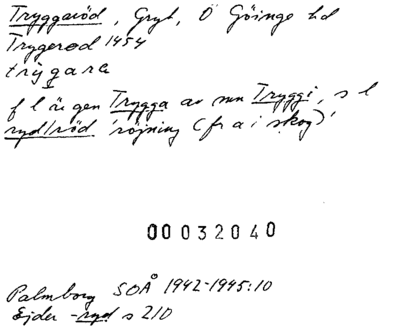 Tryggaröd, Gryt, Ö Göinge hd
Trygerød 1454
trygara
f l är gen Trygga av mn Tryggi, s l
ryd/röd 'röjning (fr a i skog)'
00032040
Palmborg SOÅ 1942-1945:10
Ejder -ryd s 210